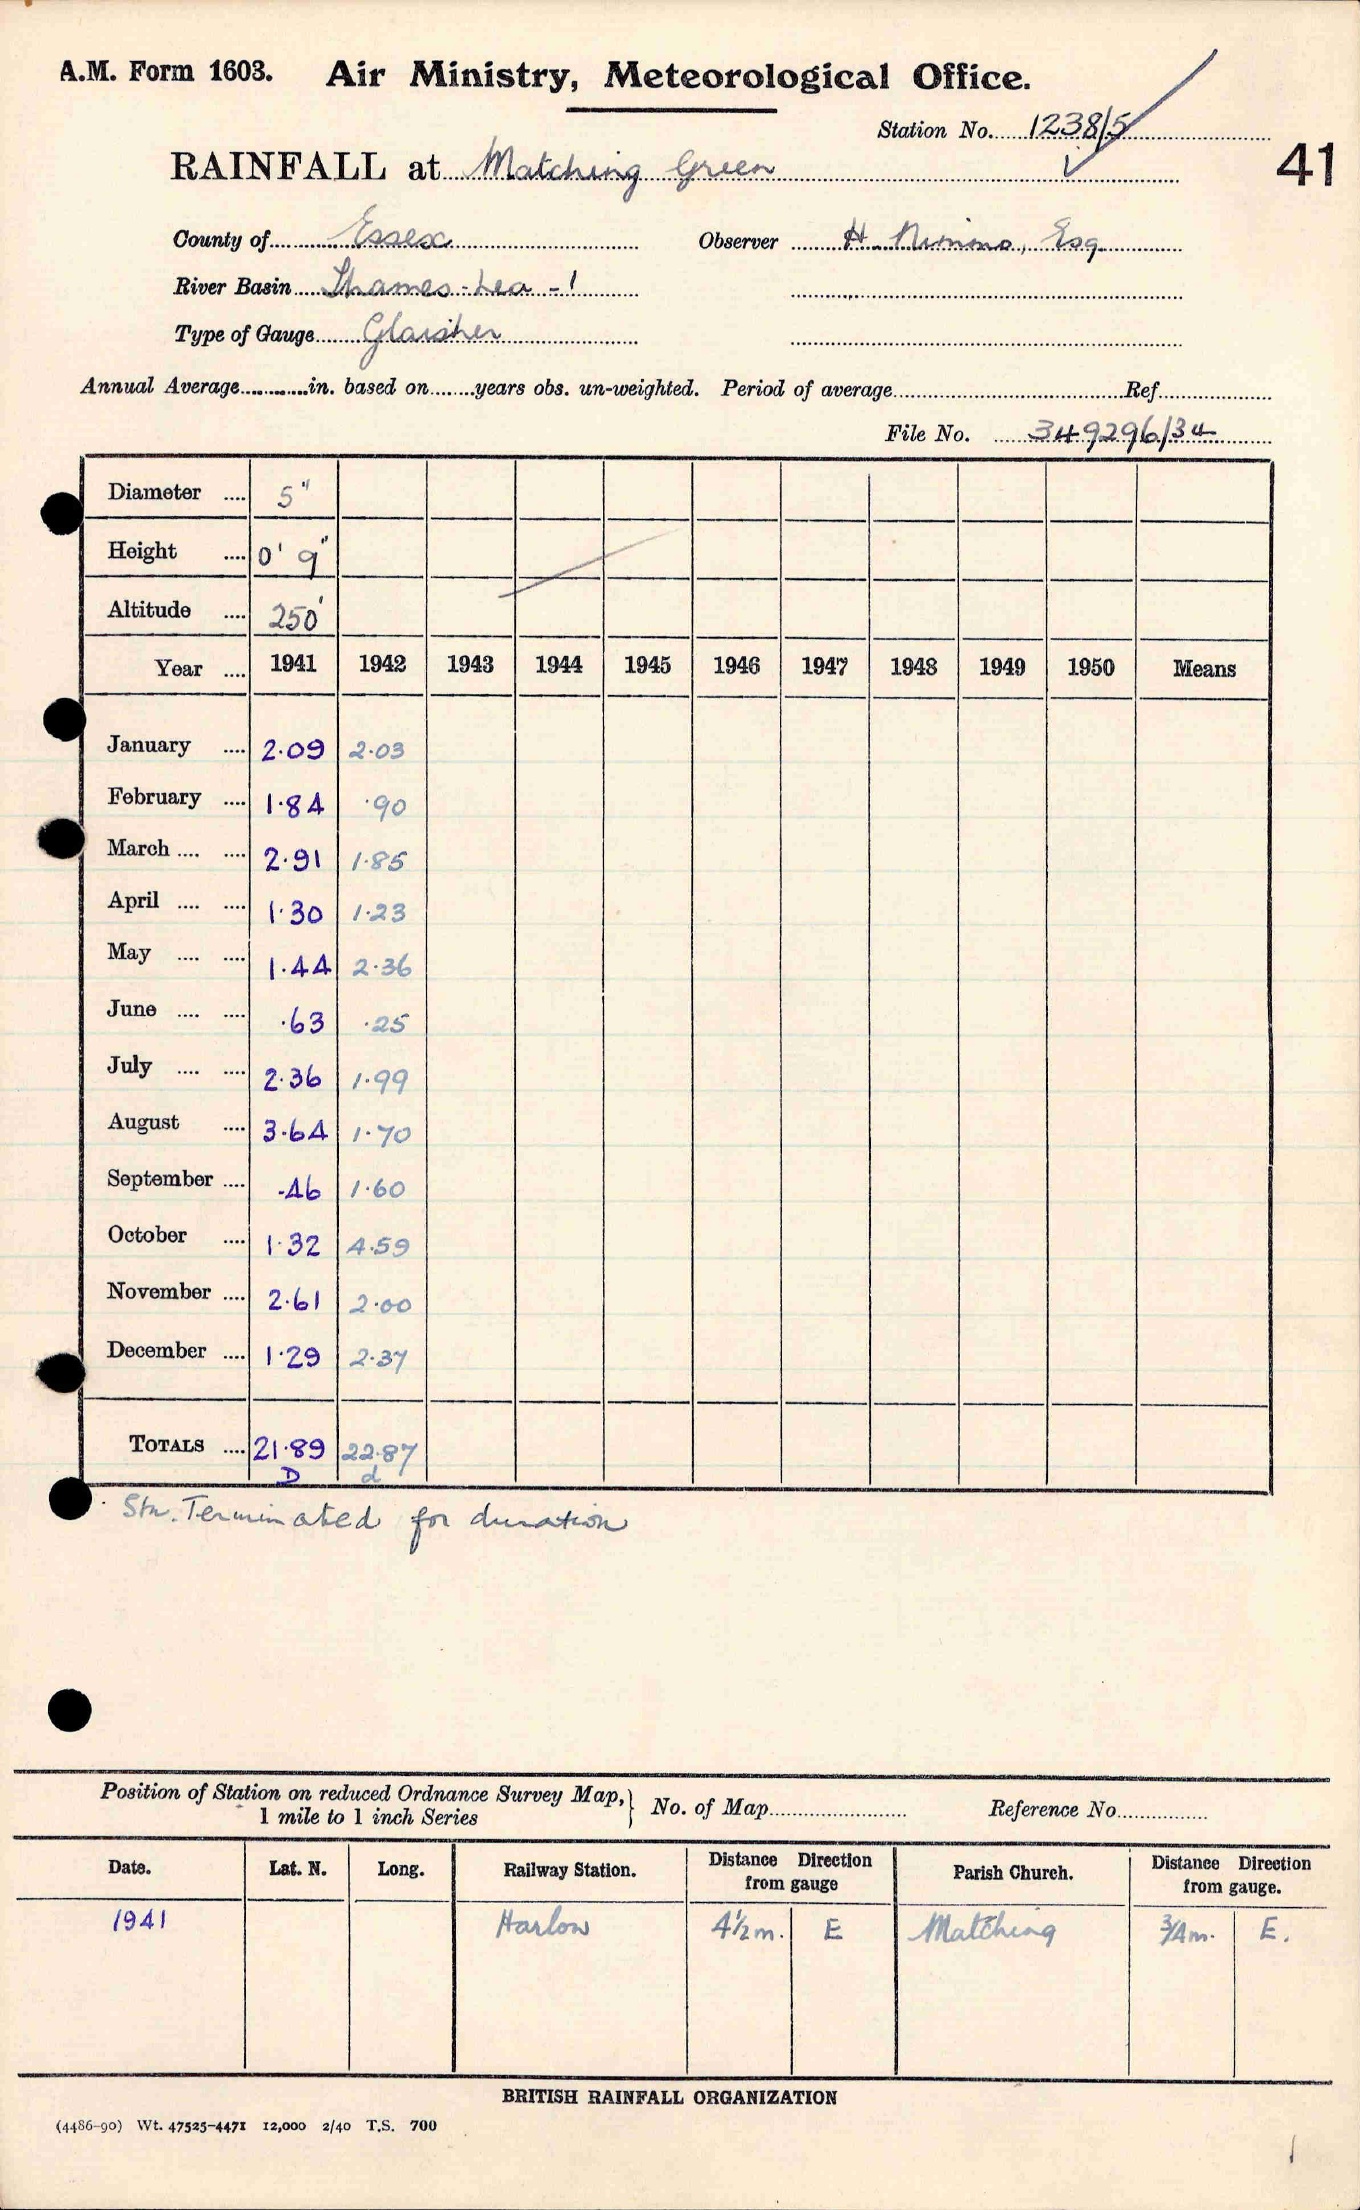 A.M. Form 1603. Air Ministry, Meteorological Office.
Station No. 1238/5
41
RAINFALL at Matching Green
County of Essex Observer H. Nimmo, Esq.
River Basin Thames-Lea - 1
Type of Gauge Glaisher
Annual Average............in. based on........years obs. un-weighted. Period of average............Ref............
File No. 349296/34
Diameter .... 5"
Height .... 0' 9"
Altitude .... 250'
Year .... 1941 1942 1943 1944 1945 1946 1947 1948 1949 1950 Means
January .... 2.09 2.03
February .... 1.84 .90
March .... .... 2.91 1.85
April .... .... 1.30 1.23
May .... .... 1.44 2.36
June .... .... .63 .25
July .... .... 2.36 1.99
August .... 3.64 1.70
September .... .46 1.60
October .... 1.32 4.59
November .... 2.61 2.00
December .... 1.29 2.37
TOTALS .... 21.89 22.87
D d
Stn. Terminated for duration
Position of Station on reduced Ordnance Survey Map, } No. of Map............ Reference No............
1 mile to 1 inch Series
Date. Lat. N. Long. Railway Station. Distance Direction from gauge Parish Church. Distance Direction from gauge.
1941 Harlow 4½m. E Matching ¾m. E.
BRITISH RAINFALL ORGANIZATION
(4486-90) Wt. 47525-4471 12,000 2/40 T.S. 700